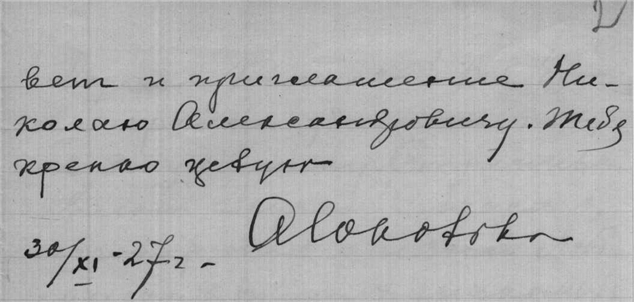 2
вет и приглашение Ни-
колаю Александровичу. Тебя
крепко целую
30/XI-27 г.